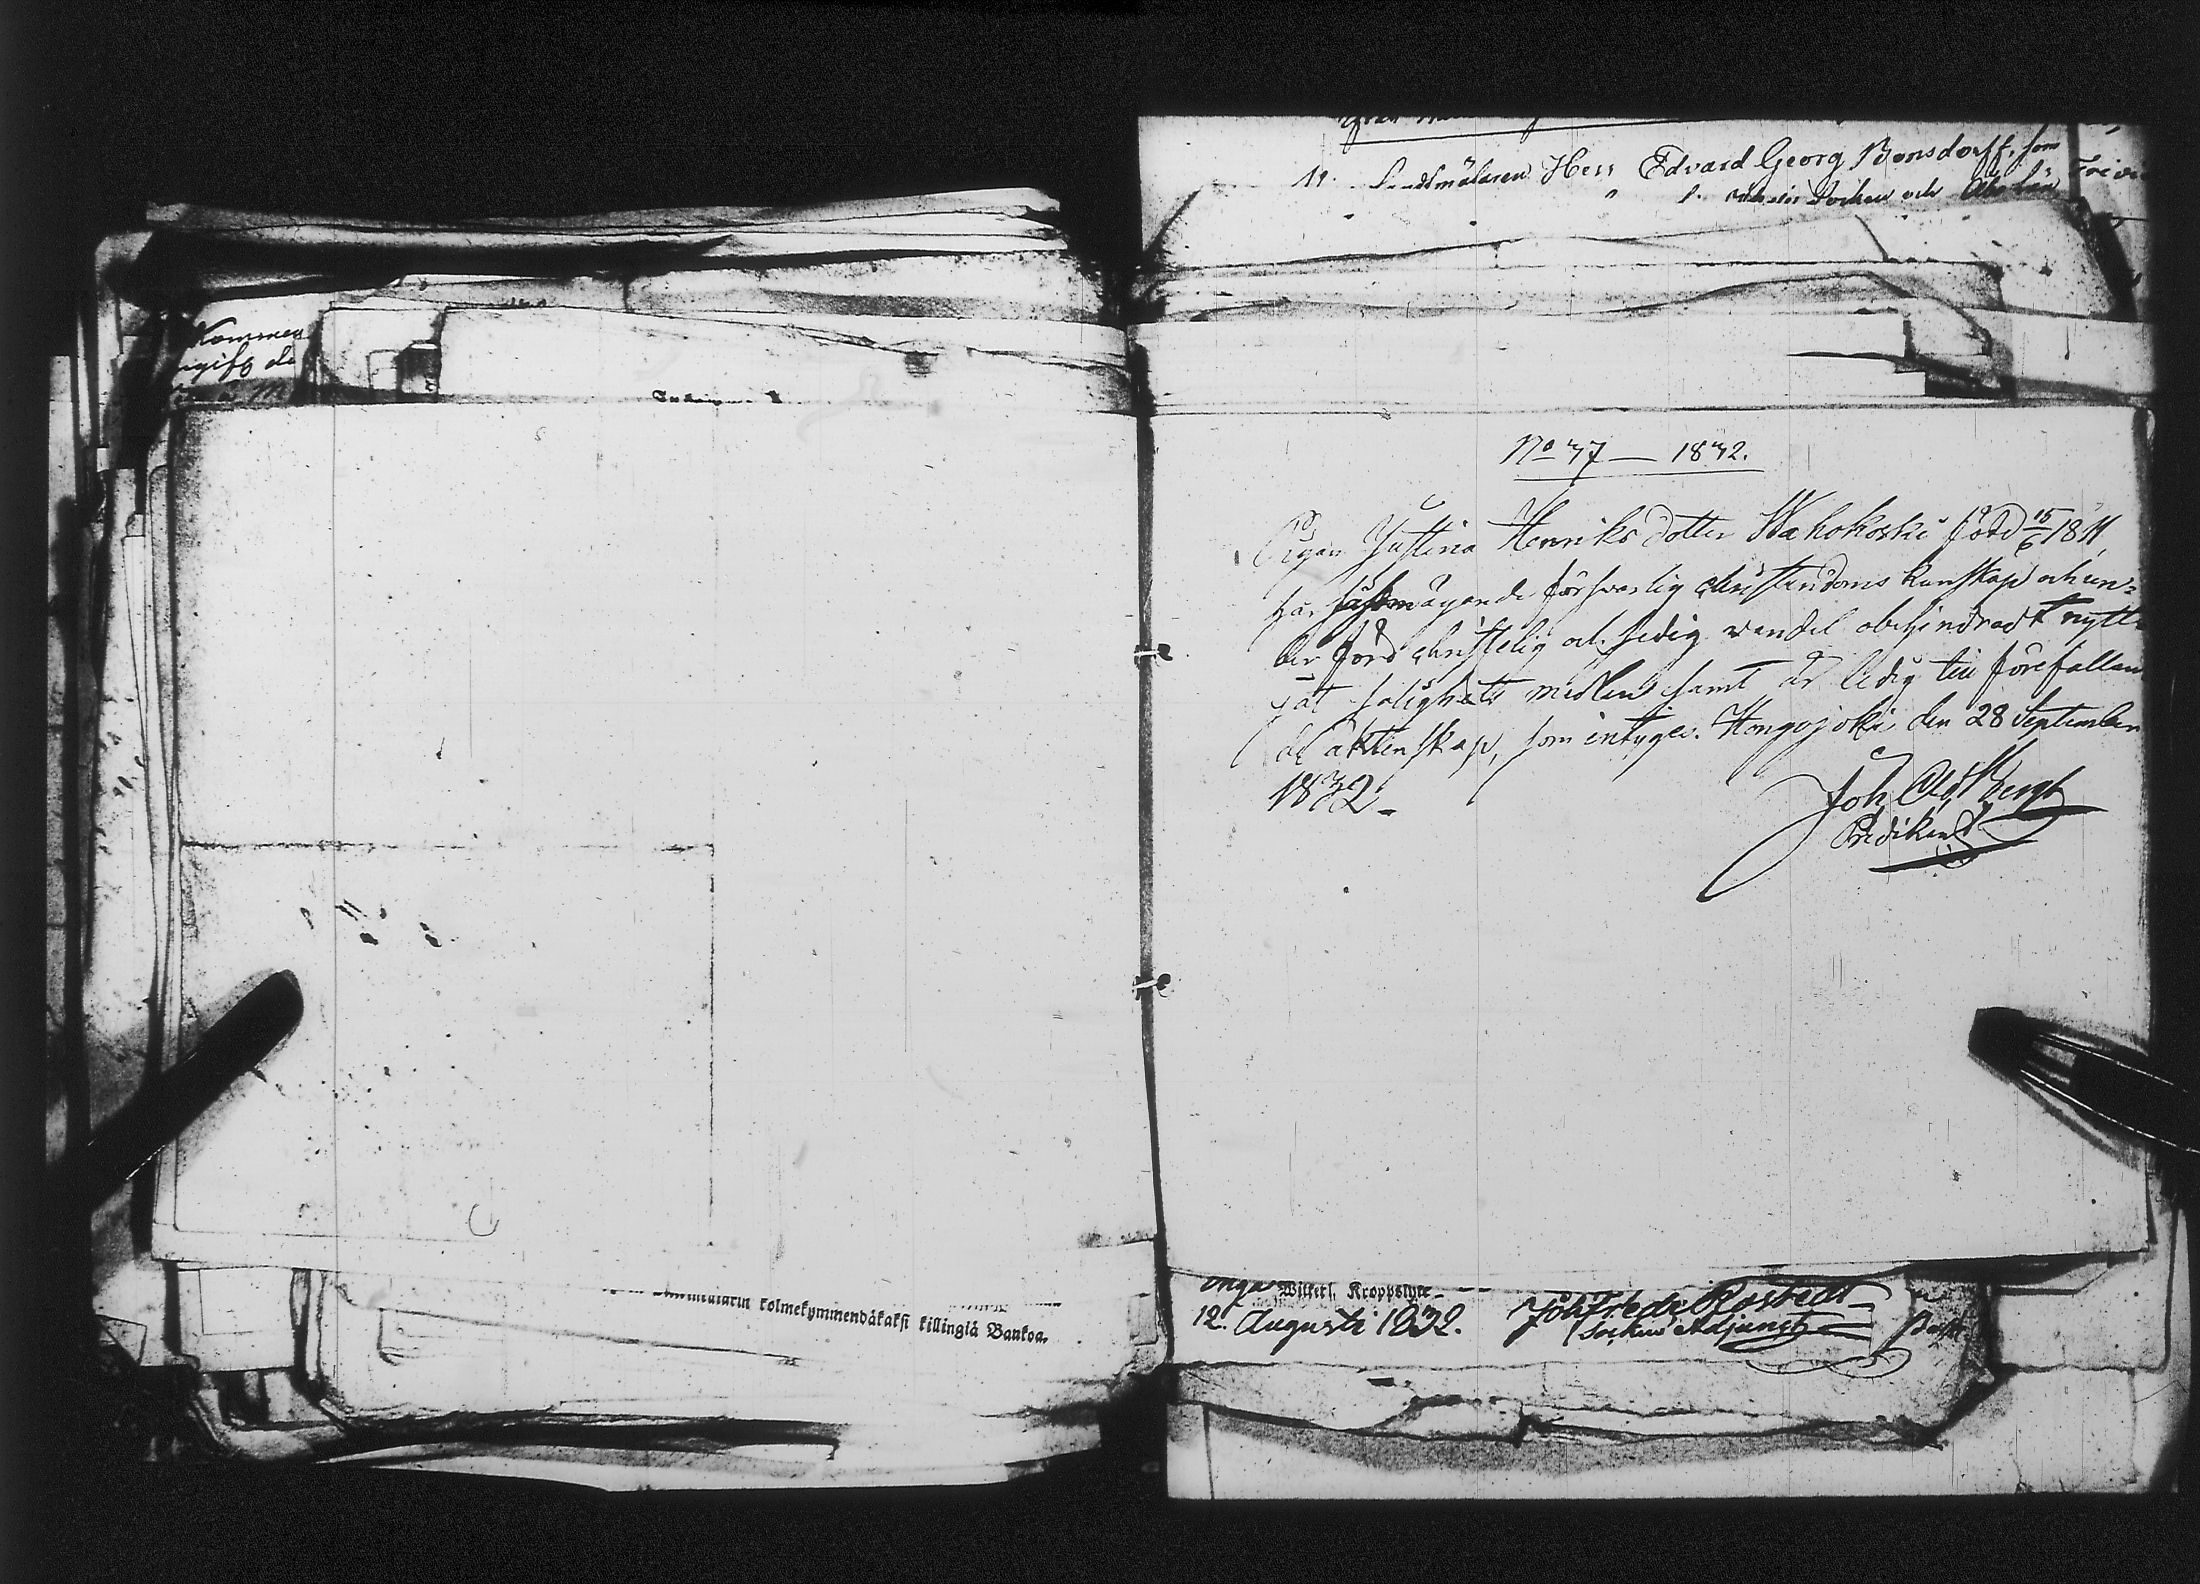 Kommen
ngift de
kolmekymmendäkaksi killingiä Bankoa.
11. Landtmätaren Herr Edvard Georg Bonsdorff, som
Socken och Åbo Län
No 37 — 1832.
Pigan Justina Henriksdotter Wahokoski född 15/6 1811,
har ägande försvarlig christendoms kunskap och un-
der förd christelig och sedig vandel obehindradt nytt-
jat salighets medlen samt är ledig till förefallan
de äktenskap, som intygas. Hongojoki den 28 September
1832.
Joh. Bergh
Predikant
Kroppslyte
12. Augusti 1832. Joh Fredr Rostedt
Socken Adjunct